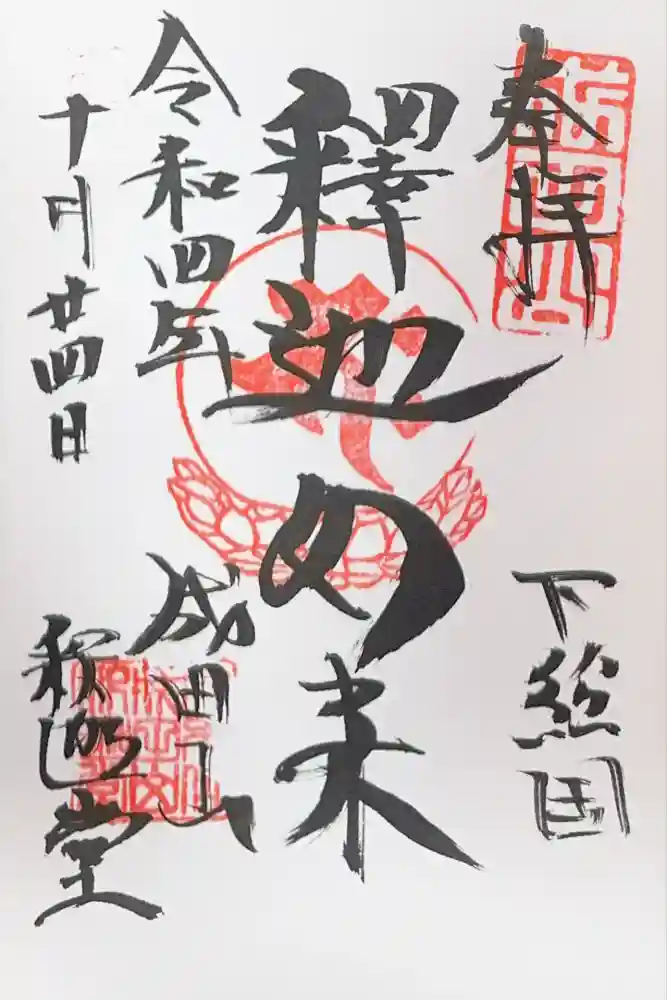 奉拝
下総国
釋迦如来
令和四年
十月廿四日
成田山
釈迦堂